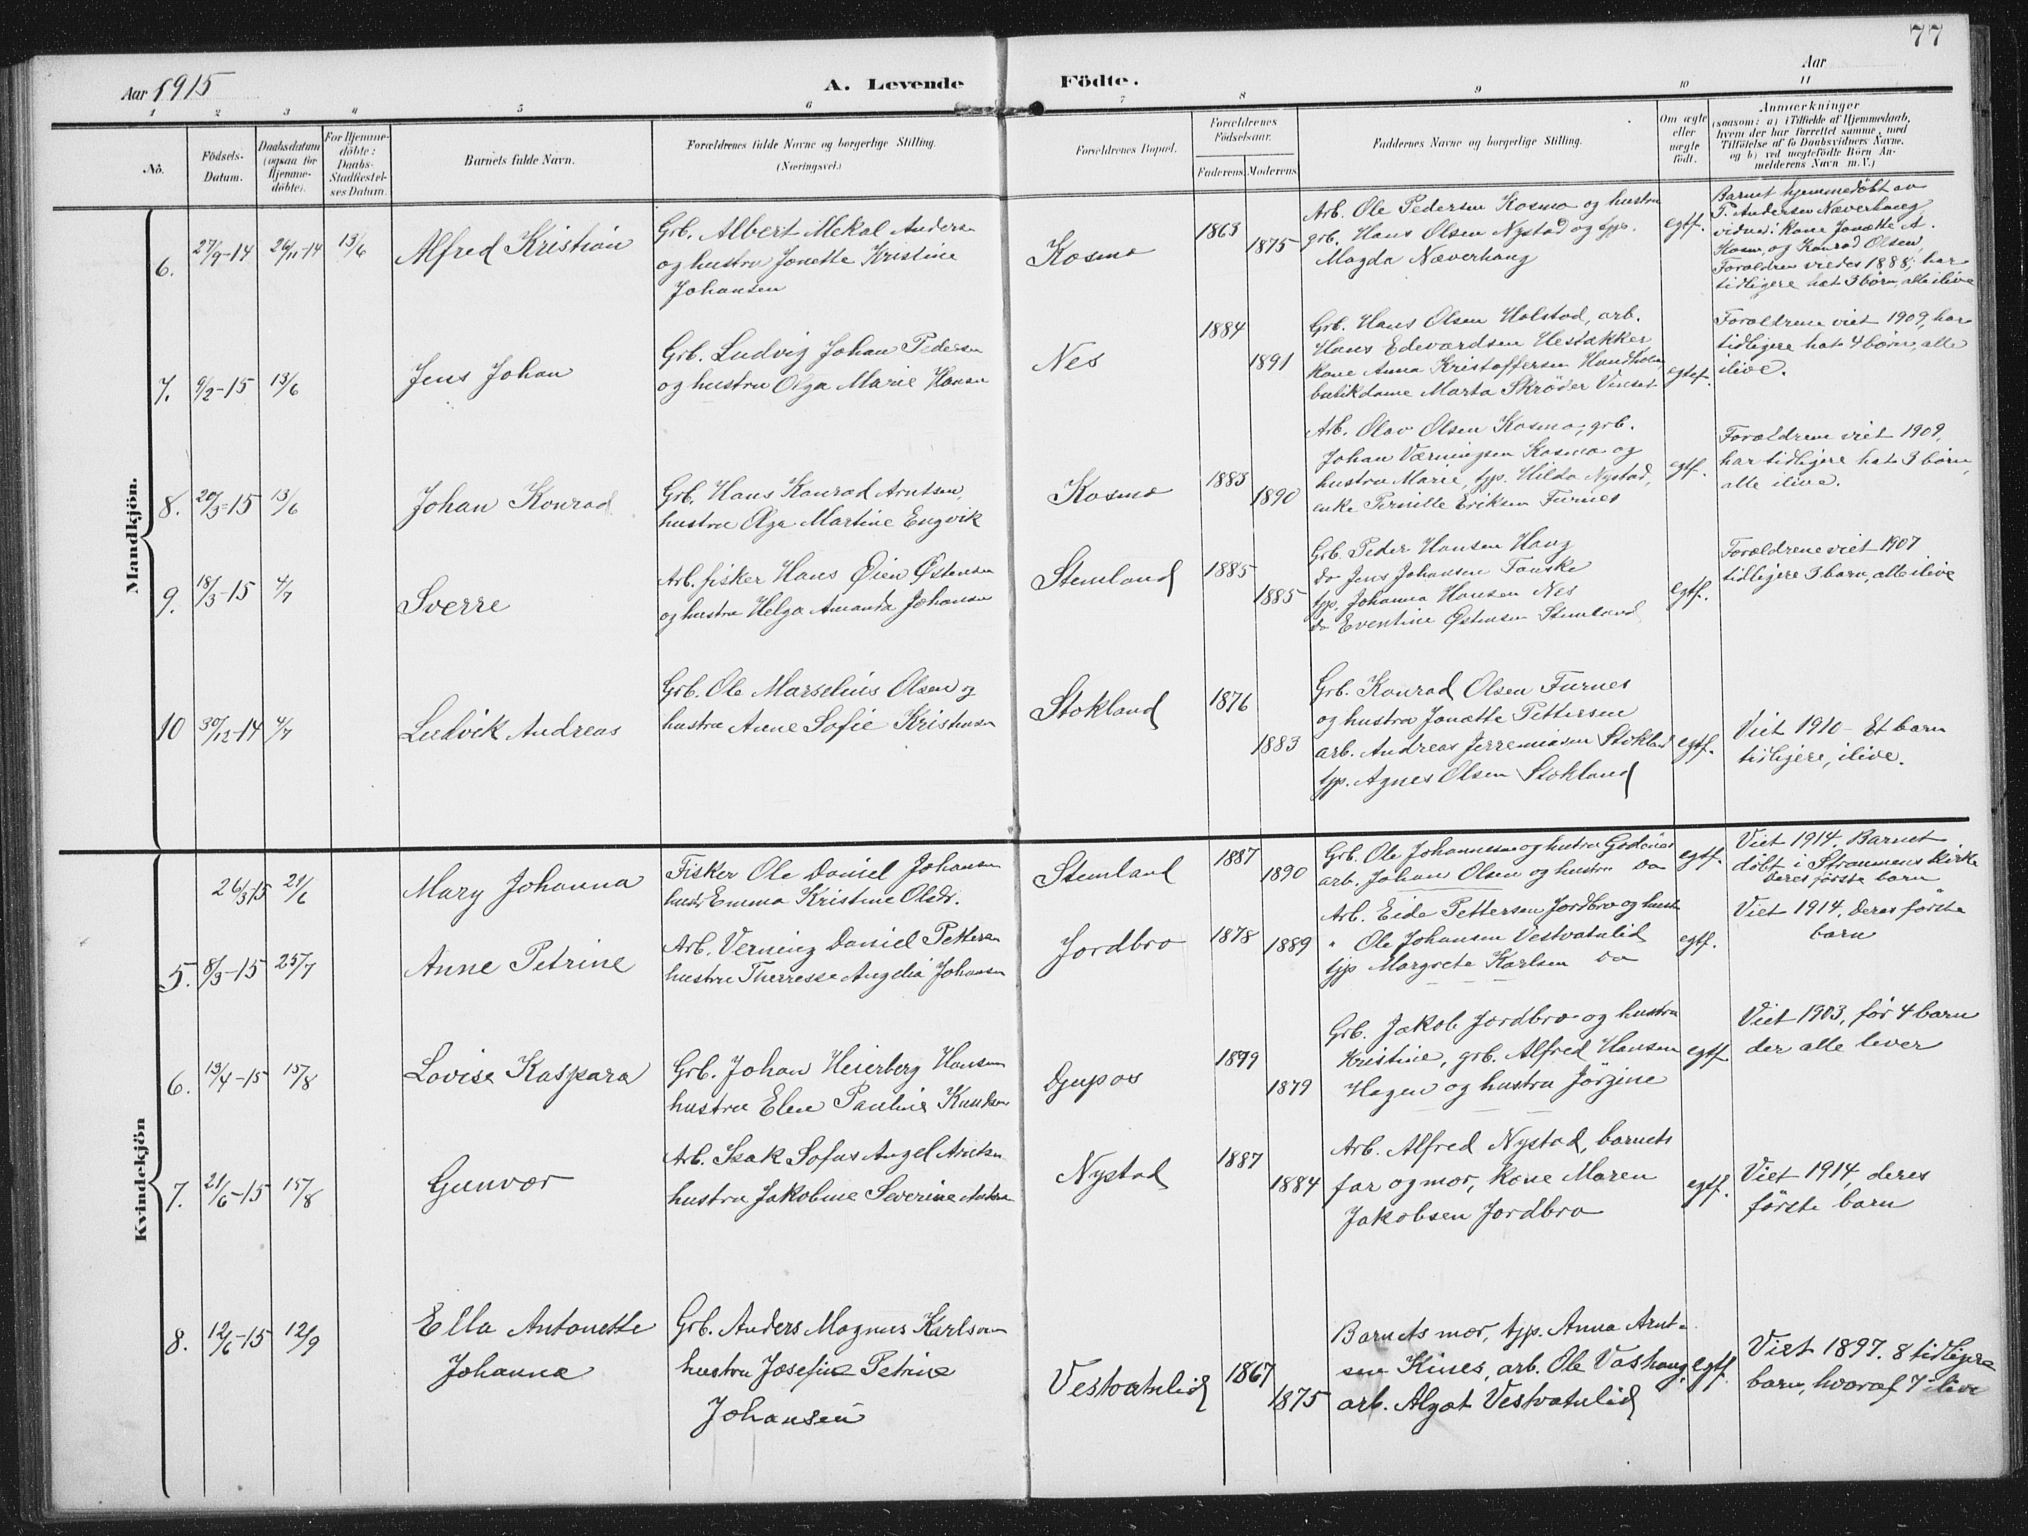 77
Aar 1915
A. Levende Födte.
Aar
1 2 3 4 5 6 7 8 9 10 11
No.
Födsels-
Datum.
Daabsdatum
(ogsaa for
Hjemme-
döbte).
For Hjemme-
döbte:
Daabs-
Stadfæstel-
ses Datum.
Barnets fulde Navn.
Forældrenes fulde Navne og borgerlige Stilling.
(Næringsvei.)
Forældrenes Bopæl.
Forældrenes
Födselsaar.
Faderens. Moderens.
Faddernes Navne og borgerlige Stilling.
Om ægte
eller
uægte
födt.
Anmærkninger
(saasom: a) i Tilfælde af Hjemmedaab,
hvem der har forrettet samme, med
Tilföielse af to Daabsvidners Navne,
og b) ved uægtefödte Börn An-
melderens Navn m. V.)
Mandkjön.
6. 27/9-14 26/11-14 13/6 Alfred Kristian
Grb. Albert Mekal Anders
og hustru Jonette Kristine
Johansen
Kosmo
1863
1875
Arb. Ole Pedersen Kosmo og hustru
grb. Hans Olsen Nystad og tjp.
Magda Næverhaug
egtf.
Barnet hjemmedøbt av
P. Andersen Næverhaug
vidner: kone Jonette A.
Kosmo, og Konrad Olsen,
Forældrene viedes 1888, har
tidligere hat 3 børn, alle ilive
7. 9/2-15 13/6 Jens Johan
Grb. Ludvig Johan Pedersen
og hustru Olga Marie Hansen
Nes
1884
1891
Grb. Hans Olsen Holstad, arb.
Hans Edvardsen Hestakker
kone Anna Kristoffersen
butikdame Marta Skrøder Venset
egtef.
Forældrene viet 1909, har
tidligere hat 4 børn, alle
ilive.
8. 20/3-15 13/6 Johan Konrad
Grb. Hans Konrad Arntsen,
hustru Olga Martine Engvik
Kosmo
1883
1890
Arb. Olav Olsen Kosmo, grb.
Johan Værningsen Kosmo og
hustru Marie, tjp. Hilda Nystad,
enke Pernille Eriksen Furnes
egtf.
Forældrene viet 1909,
har tidligere hat 3 børn,
alle ilive.
9. 18/3-15 4/7 Sverre
Arb. fisker Hans Øien Østensen
og hustru Helga Amanda Johansen
Stemland
1885
1885
Grb. Peder Hansen Haug
do Jens Johansen Fauske
tjp. Johanna Hansen Nes
do Eventine Østensen Stemland
egtf.
Forældrene viet 1907
tidligere 3 barn, alle ilive
10 30/12-14 4/7 Ludvik Andreas
Grb. Ole Marselius Olsen og
hustru Anne Sofie Kristiansen
Stokland
1876
1883
Grb. Konrad Olsen Furnes
og hustru Jonette Pettersen
arb. Andreas Jerremiasen Stokland
tjp. Agnes Olsen Stokland
egtf.
Viet 1910 - Et barn
tidligere, ilive.
Kvindekjön
26/3 15 21/6 Mary Johanna
Fisker Ole Daniel Johansen
hustr Emma Kristine Olsdr.
Stemland
1887
1890
Grb. Ole Johannesen og hustru
arb. Johan Olsen og hustru Do
egtf.
Viet 1914. Barnet
døbt i Straumens kirke
Deres første barn
5. 8/3-15 25/7 Anne Petrine
Arb. Verning Daniel Pettersen
hustru Therresse Angelia Johansen
Jordbro
1878
1889
Arb. Eide Pettersen Jordbro og hustr
" Ole Johansen Vestvatnlid
tjp Margrete Karlsen Do
egtf.
Viet 1914, deres første
barn
6. 13/4-15 15/8 Lovise Kaspara
Grb. Johan Heierberg Hansen
hustru Elen Pauline Knudsen
Djupos
1899
1879
Grb. Jakob Jordbro og hustru
Kristine, grb. Alfred Hansen
Hagen og hustru Jørgine
egtf.
Viet 1903, før 4 barn
der alle lever
7. 21/6-15 15/8 Gunvor
Arb. Isak Sofus Angel Arntsen
hustru Jakobine Severine
Nystad
1887
1884
Arb. Alfred Nystad, barnets
far og mor, kone Maren
Jakobsen Jordbro
egtf.
Viet 1914, deres
første barn
8. 12/6-15 12/9 Ella Antonette
Johanne
Grb. Anders Magnus Karlsen
hustru Josefine Petrine
Johansen
Vestvatnlid
1867
1875
Barnets mor, tjp. Anna Arnt-
sen Kines, arb. Ole Voshaug,
arb. Algot Vestvatnlid
egtf.
Viet 1897. 8 tidligere
barn, hvoraf 7 ilive